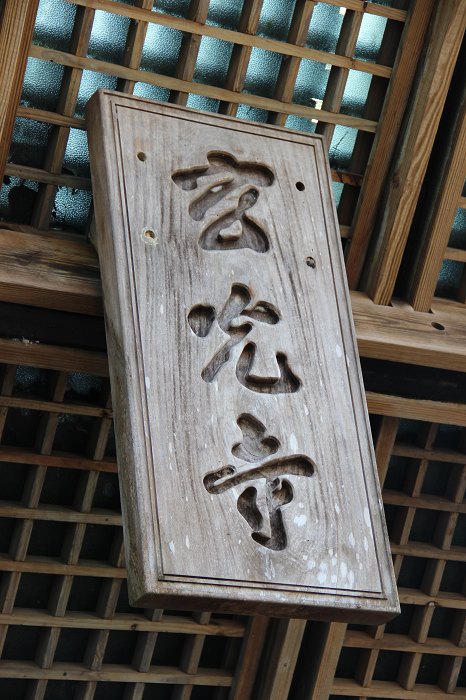 玄光寺